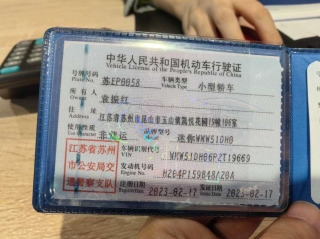 中华人民共和国机动车行驶证
Vehicle License of the People's Republic of China
号牌号码 苏EP0058 车辆类型 小型轿车
Plate No. Vehicle Type
所有人 袁振红
Owner
住址 江苏省苏州市昆山市玉山镇 悦花园19幢106室
Address
使用性质 非营运 品牌型号 迷你WMW51DH0
江苏省苏州 车辆识别代号
VIN
市公安局交 发动机号码 H264P159848A20A
Engine No.
通警察支队 注册日期 2023-02-17 发证日期 2023-02-17